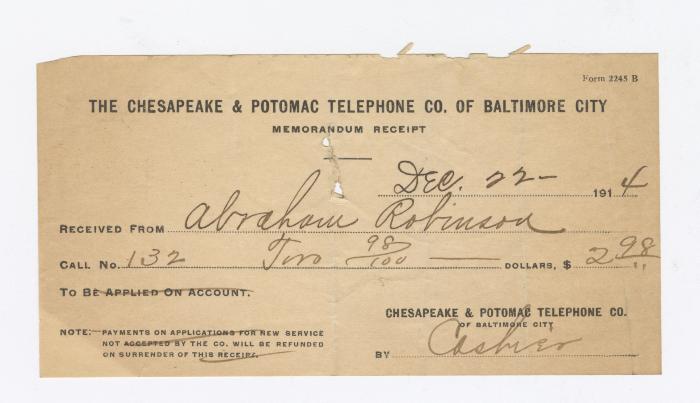 Form 2245 B
THE CHESAPEAKE & POTOMAC TELEPHONE CO. OF BALTIMORE CITY
MEMORANDUM RECEIPT
Dec. 22- 1914
RECEIVED FROM Abraham Robinson
CALL No. 132 Two 98/100 DOLLARS, $ 2 98
TO BE APPLIED ON ACCOUNT.
CHESAPEAKE & POTOMAC TELEPHONE CO.
OF BALTIMORE CITY
NOTE: PAYMENTS ON APPLICATIONS FOR NEW SERVICE
NOT ACCEPTED BY THE CO. WILL BE REFUNDED
ON SURRENDER OF THIS RECEIPT.
BY Cashier